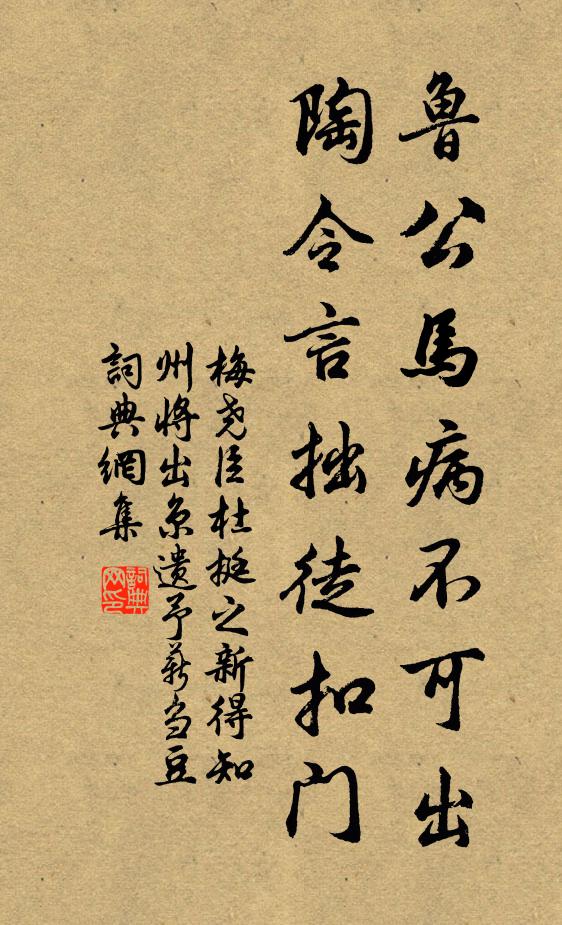 魯公馬病不可出
陶令言拙徒扣门
梅尧臣杜挺之新得知
州將出京遗予薪刍豆
詞典網集
詞典网印